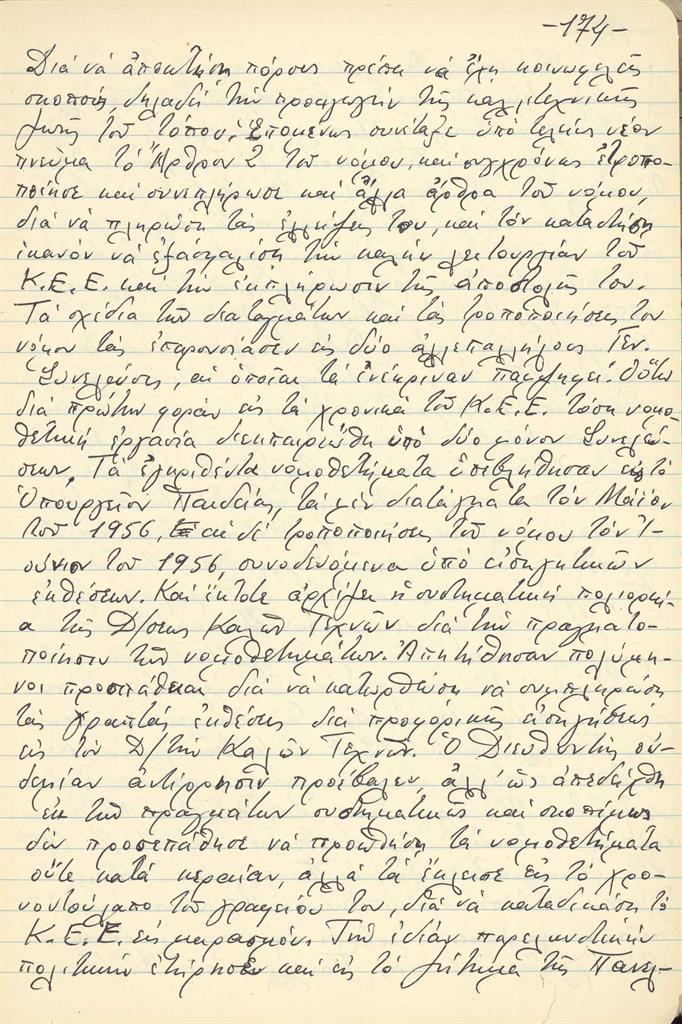 -174-
Διά νά ἀποκτήσῃ πόρους πρέπει νά ἔχῃ κοινωφελεῖς
σκοπούς, δηλαδή τήν προαγωγήν τῆς καλλιτεχνικῆς
ζωῆς τοῦ τόπου. Ἑπομένως συνέταξε ὑπό τελείως νέον
πνεῦμα τό Ἄρθρον 2 τοῦ νόμου, καί συγχρόνως ἐτροπο-
ποίησε καί συνεπλήρωσε καί ἄλλα ἄρθρα τοῦ νόμου,
διά νά πληρώσῃ τάς ἐλλείψεις του, καί τόν καταστήσῃ
ἱκανόν νά ἐξασφαλίσῃ τήν καλήν λειτουργίαν τοῦ
Κ.Ε.Ε. καί τήν ἐκπλήρωσιν τῆς ἀποστολῆς του.
Τά σχέδια τῶν διαταγμάτων καί τάς τροποποιήσεις τοῦ
νόμου τάς ἐπαρουσίασεν εἰς δύο ἀλλεπαλλήλους Γεν.
Συνελεύσεις, αἱ ὁποῖαι τά ἐνέκριναν παμψηφεί. Οὕτω
διά πρώτην φοράν εἰς τά χρονικά τοῦ Κ.Ε.Ε. τόση νομο-
θετική ἐργασία διεκπεραιώθη ὑπό δύο μόνον Συνελεύ-
σεων. Τά ἐγκριθέντα νομοθετήματα ὑπεβλήθησαν εἰς τό
Ὑπουργεῖον Παιδείας, τά μέν διατάγματα τόν Μάϊον
τοῦ 1956, αἱ δέ τροποποιήσεις τοῦ νόμου τόν Ἰ-
ούνιον τοῦ 1956, συνοδευόμενα ὑπό εἰσηγητικῶν
ἐκθέσεων. Καί ἔκτοτε ἀρχίζει ἡ συστηματική πολιορκί-
α τῆς Δ/σεως Καλῶν Τεχνῶν διά τήν πραγματο-
ποίησιν τῶν νομοθετημάτων. Ἀπῃτήθησαν πολύμη-
νοι προσπάθειαι διά νά κατορθώσῃ νά συμπληρώσῃ
τάς γραπτάς ἐκθέσεις διά προφορικῆς εἰσηγήσεως
εἰς τόν Δ/τήν Καλῶν Τεχνῶν. Ὁ Διευθυντής οὐ-
δεμίαν ἀντίρρησιν προέβαλεν, ἀλλ' ὡς ἀπεδείχθη
ἐκ τῶν πραγμάτων συστηματικῶς καί σκοπίμως
δέν προσεπάθησε νά προωθήσῃ τά νομοθετήματα
οὔτε κατά κεραίαν, ἀλλά τά ἔκλεισε εἰς τό χρο-
νοντούλαπο τοῦ γραφείου του, διά νά καταδικάσῃ τό
Κ.Ε.Ε. εἰς μαρασμόν. Τήν ἰδίαν παρελκυστικήν
πολιτικήν ἐτήρησεν καί εἰς τό ζήτημα τῆς Πανελ-